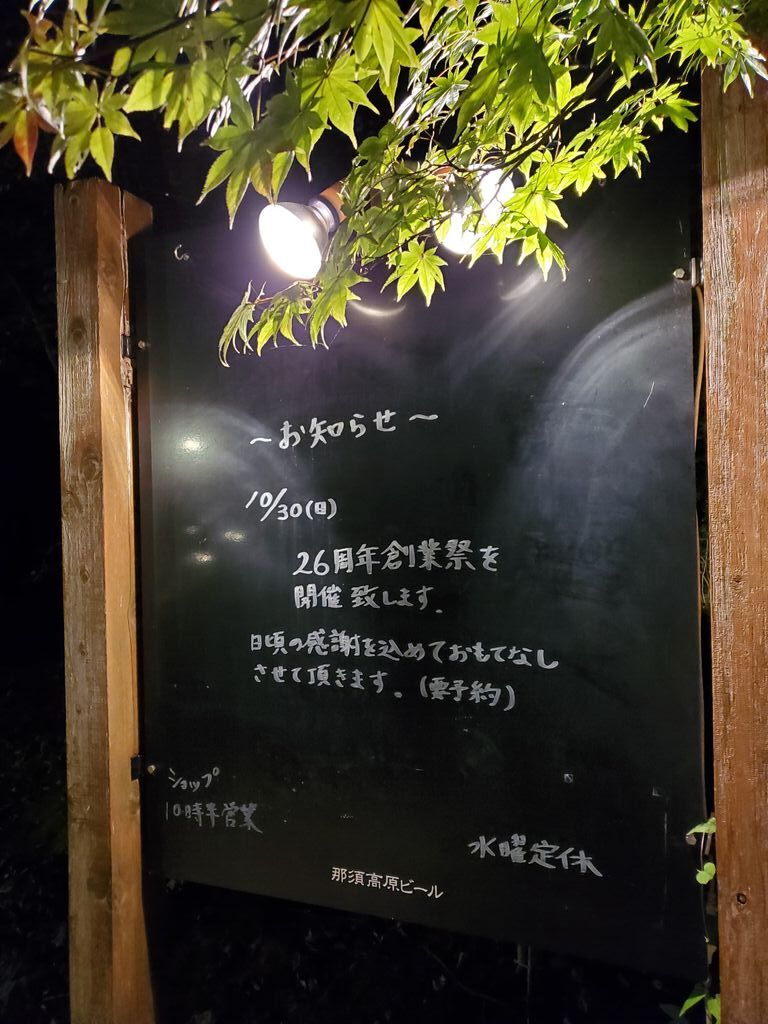 ～お知らせ～
10/30(日)
26周年創業祭を
開催致します。
日頃の感謝を込めておもてなし
させて頂きます。(要予約)
ショップ
10時半営業
水曜定休
那須高原ビール